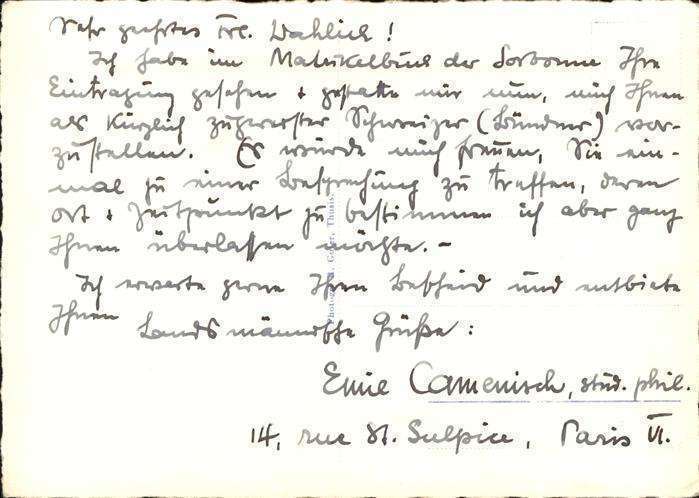 Sehr geehrtes Frl. Wahlich!
Ich habe im Matrikelbuch der Sorbonne Ihre
Eintragung gesehen + gestatte mir nun, mich Ihnen
als kürzlich zugereister Schweizer (Bündner) vor-
zustellen. Es würde mich freuen, Sie ein-
mal zu einer Besprechung zu treffen, deren
Ort + Zeitpunkt zu bestimmen ich aber ganz
Ihnen überlassen möchte. –
Ich erwarte gerne Ihren Bescheid und entbiete
Ihnen Landsmännische Grüße:
Emil Camenisch, stud. phil.
14, rue St. Sulpice, Paris VI.
Photogr. Geiger, Thusis